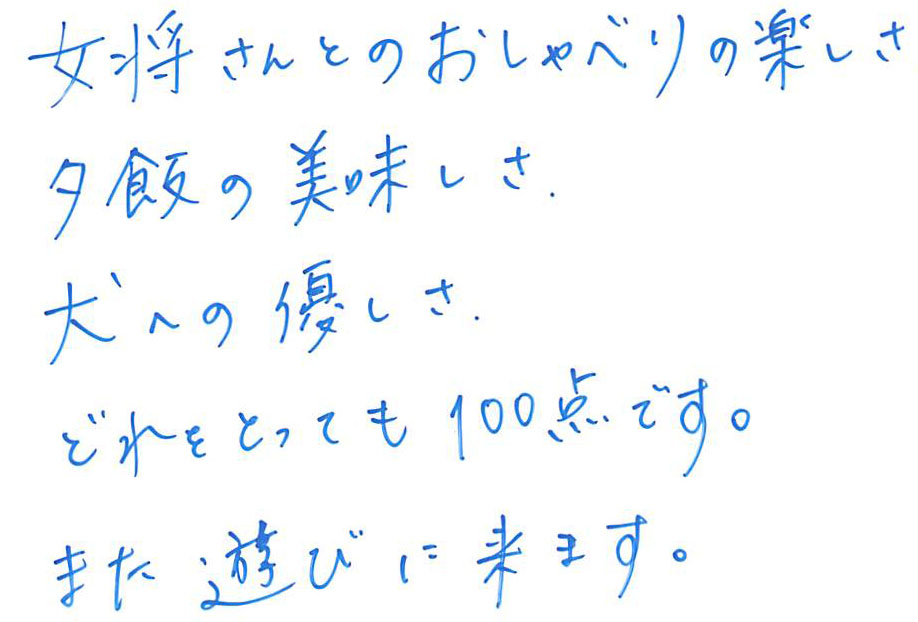 女将さんとのおしゃべりの楽しさ
夕飯の美味しさ.
犬への優しさ.
どれをとっても100点です。
また遊びに来ます。